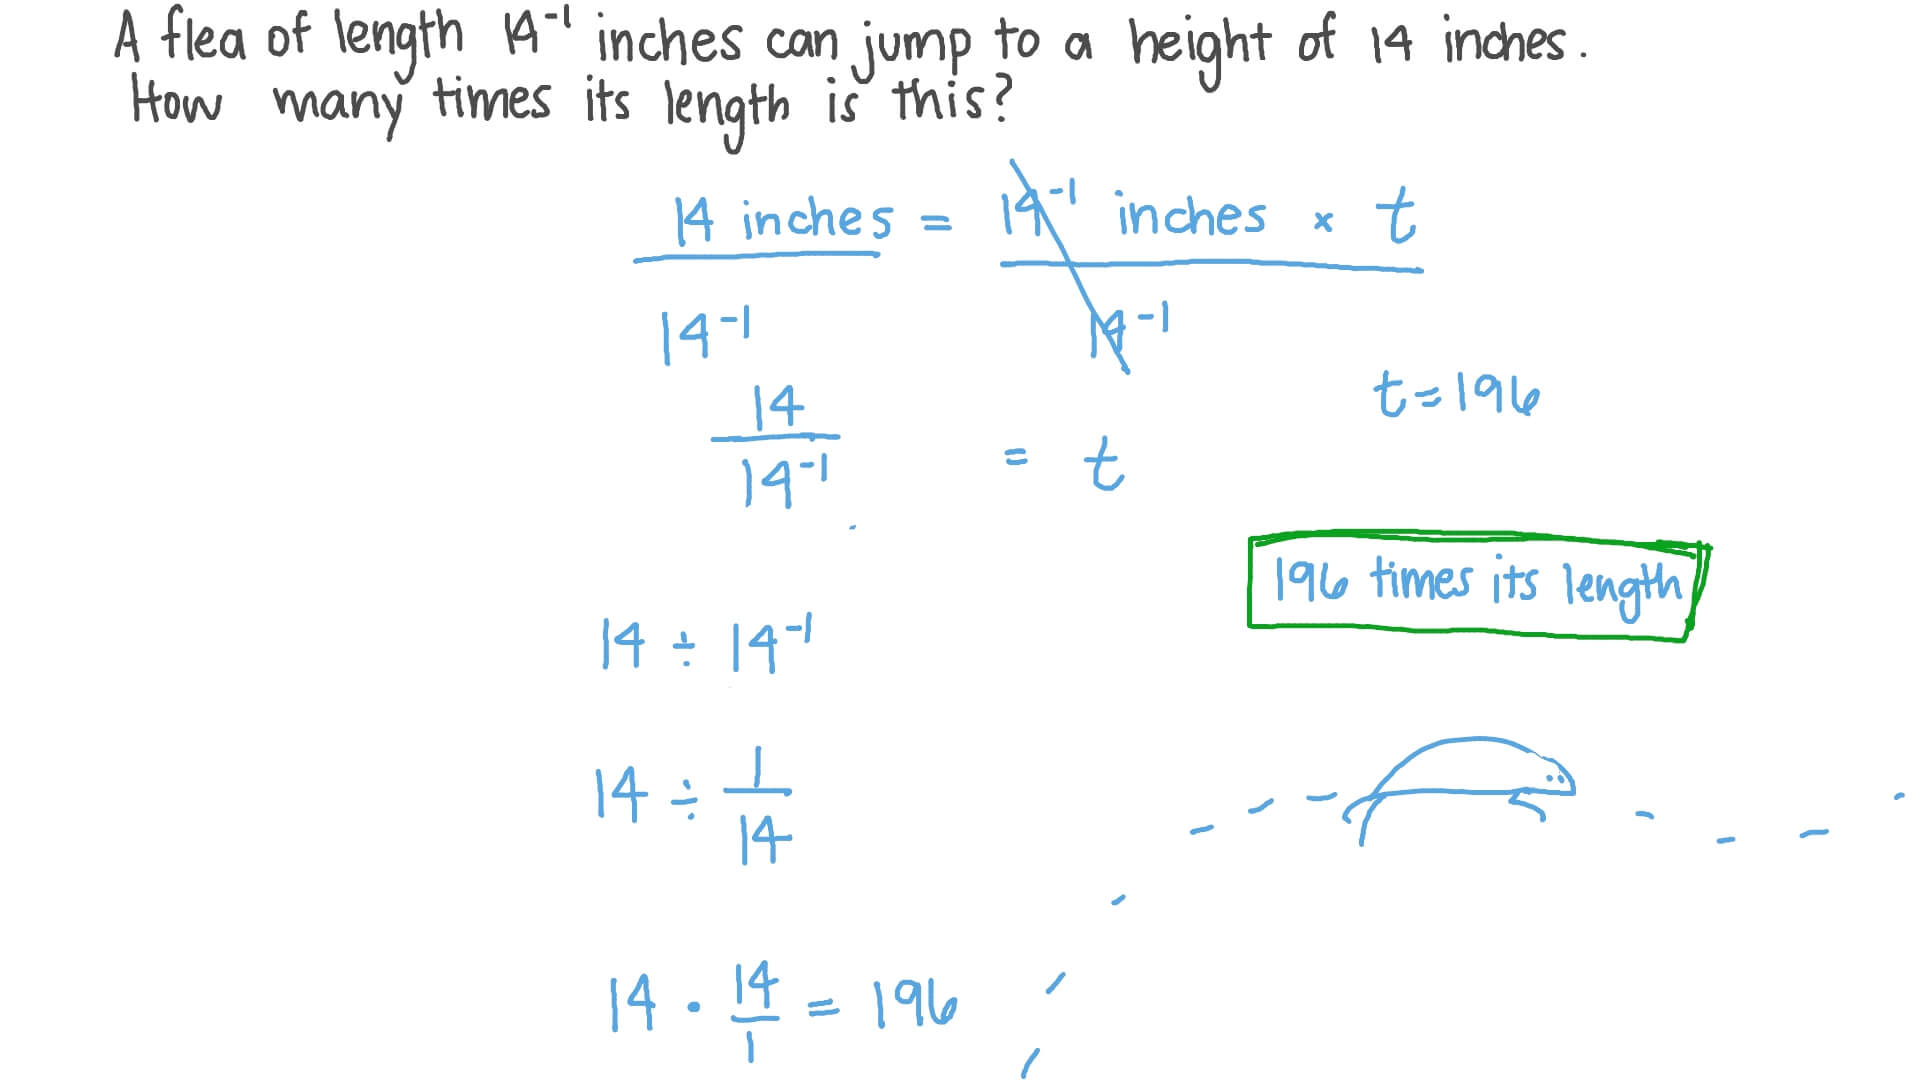 A flea of length 14⁻¹ inches can jump to a height of 14 inches.
How many times its length is this?
14 inches = 14⁻¹ inches × t
14⁻¹ 14⁻¹
14
14⁻¹ = t
t = 196
196 times its length
14 ÷ 14⁻¹
14 ÷ 1/14
14 · 14/1 = 196